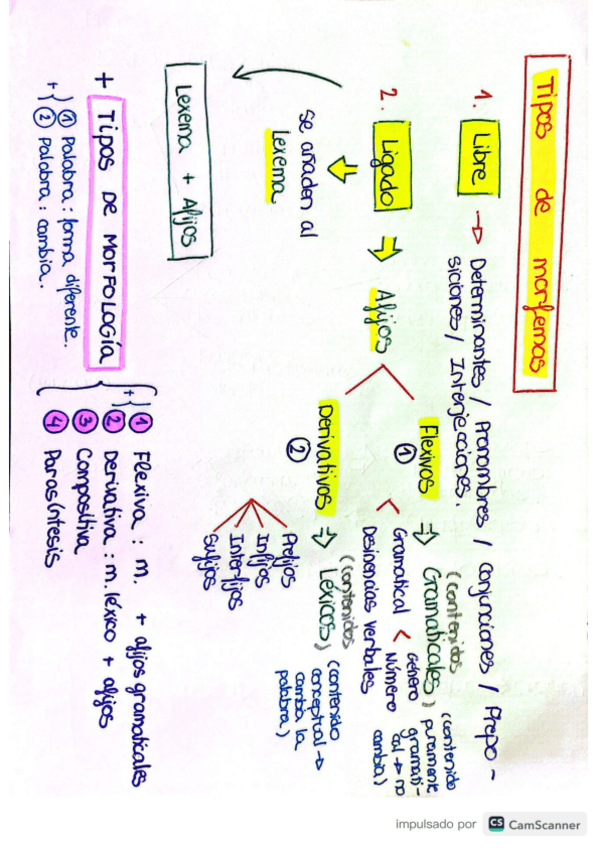 Tipos de morfemas
1. Libre → Determinantes / Pronombres / Conjunciones / Prepo-
siciones / Interjecciones.
2. Ligado ⇒ Afijos
se añaden al
lexema
Lexema + Afijos
Flexivos ⇒ Gramaticales
①
(contenidos)
(contenido
puramente
gramati-
cal → no
cambia)
Gramatical < Género
Número
Desinencias verbales
Derivativos ⇒ Léxicos
②
(contenidos)
(contenido
conceptual →
cambia la
palabra)
Prefijos
Infijos
Interfijos
Sufijos
+ Tipos DE MORFOLOGÍA
+ ① Palabra : forma diferente.
② Palabra : cambia.
+ ① Flexiva : m. + afijos gramaticales
② Derivativa : m. léxico + afijos
③ Compositiva
④ Parasíntesis
impulsado por CS CamScanner